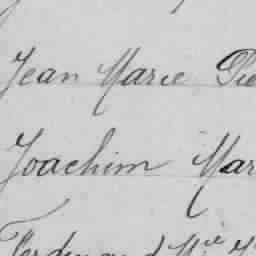 Jean Marie Pie
Joachim Mar
Ferdinand Mie M